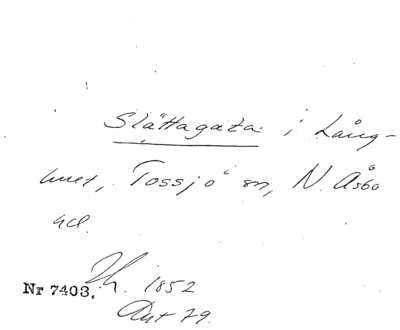 Slättagata i Lång-
huset, Tossjö sn, N. Åsbo
hd.
Nr 7403. Th. 1852
Avt 79.